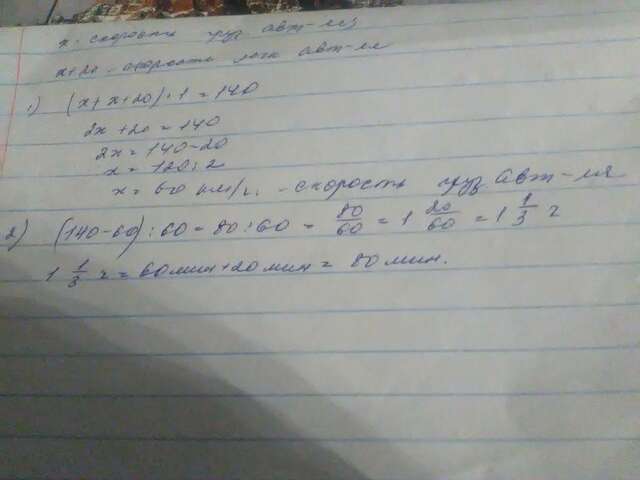 x - скорость груз авт-ля
x+20 - скорость легк авт-ля
1) (x+x+20)·1=140
2x+20=140
2x=140-20
x=120:2
x=60 км/ч. - скорость груз авт-ля
2) (140-60):60=80:60= 80/60 = 1 20/60 = 1 1/3 ч
1 1/3 ч = 60мин+20мин = 80мин.